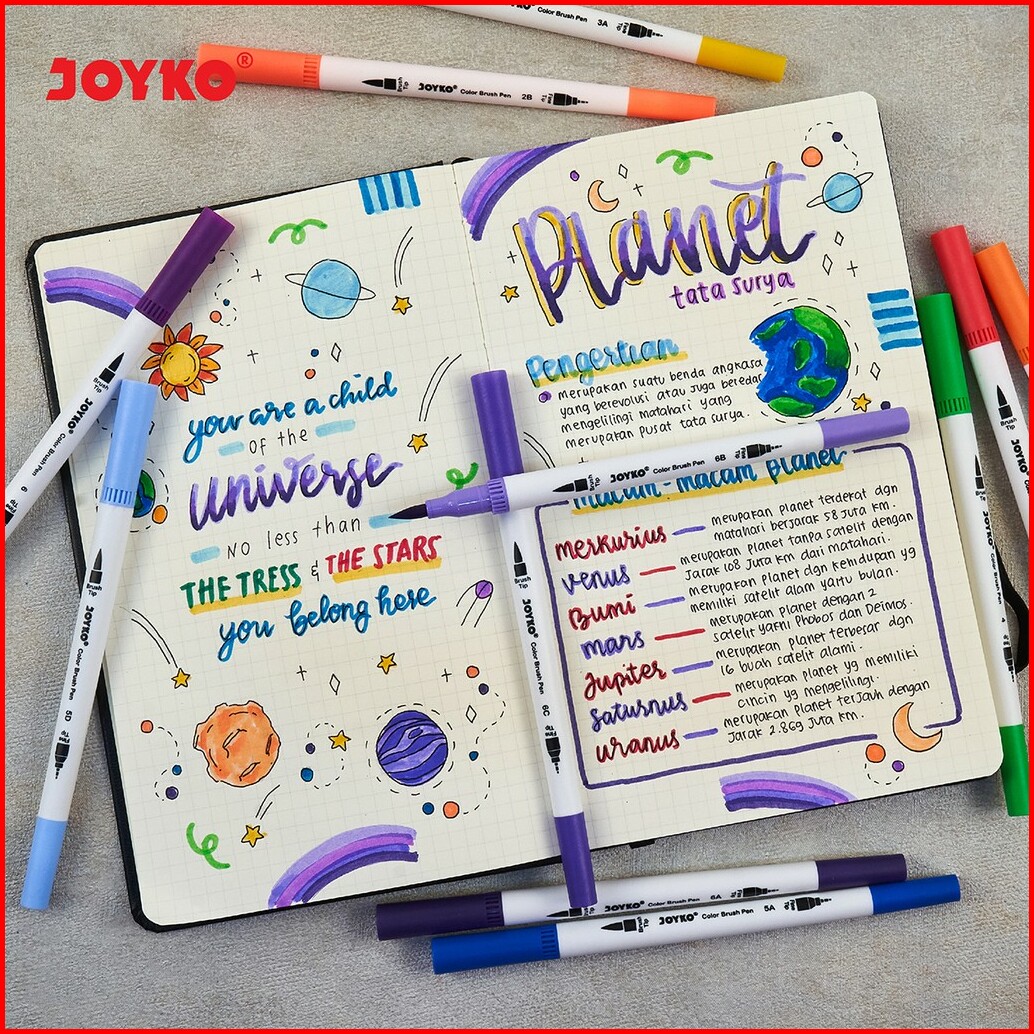 JOYKO®
JOYKO Color Brush Pen 3A Fine Tip
Brush Tip JOYKO® Color Brush Pen 2B Fine Tip
you are a child
of the
universe
no less than
THE TRESS & THE STARS
you belong here
Planet
tata surya
Pengertian
merupakan suatu benda angkasa
yang berevolusi atau juga beredar
mengelilingi matahari yang
merupakan pusat tata surya.
macam-macam planet
merkurius merupakan planet terdekat dgn
matahari berjarak 58 juta km.
venus merupakan planet tanpa satelit dengan
jarak 108 juta km dari matahari.
Bumi merupakan planet dgn kehidupan yg
memiliki satelit alam yaitu bulan.
mars merupakan planet dengan 2
satelit yafni Phobos dan Deimos.
Jupiter merupakan planet terbesar dgn
16 buah satelit alami.
saturnus merupakan planet yg memiliki
cincin yg mengelilingi.
uranus merupakan planet terjauh dengan
jarak 2.869 juta km.
Brush Tip JOYKO® Color Brush Pen 6
Brush Tip JOYKO® Color Brush Pen 5D Fine Tip
JOYKO® Color Brush Pen 6B Fine Tip
Brush Tip JOYKO® Color Brush Pen 6C
JOYKO® Color Brush Pen 4 Fine Tip
JOYKO Color Brush Pen 6A Fine Tip
Brush Tip JOYKO® Color Brush Pen 5A Fine Tip